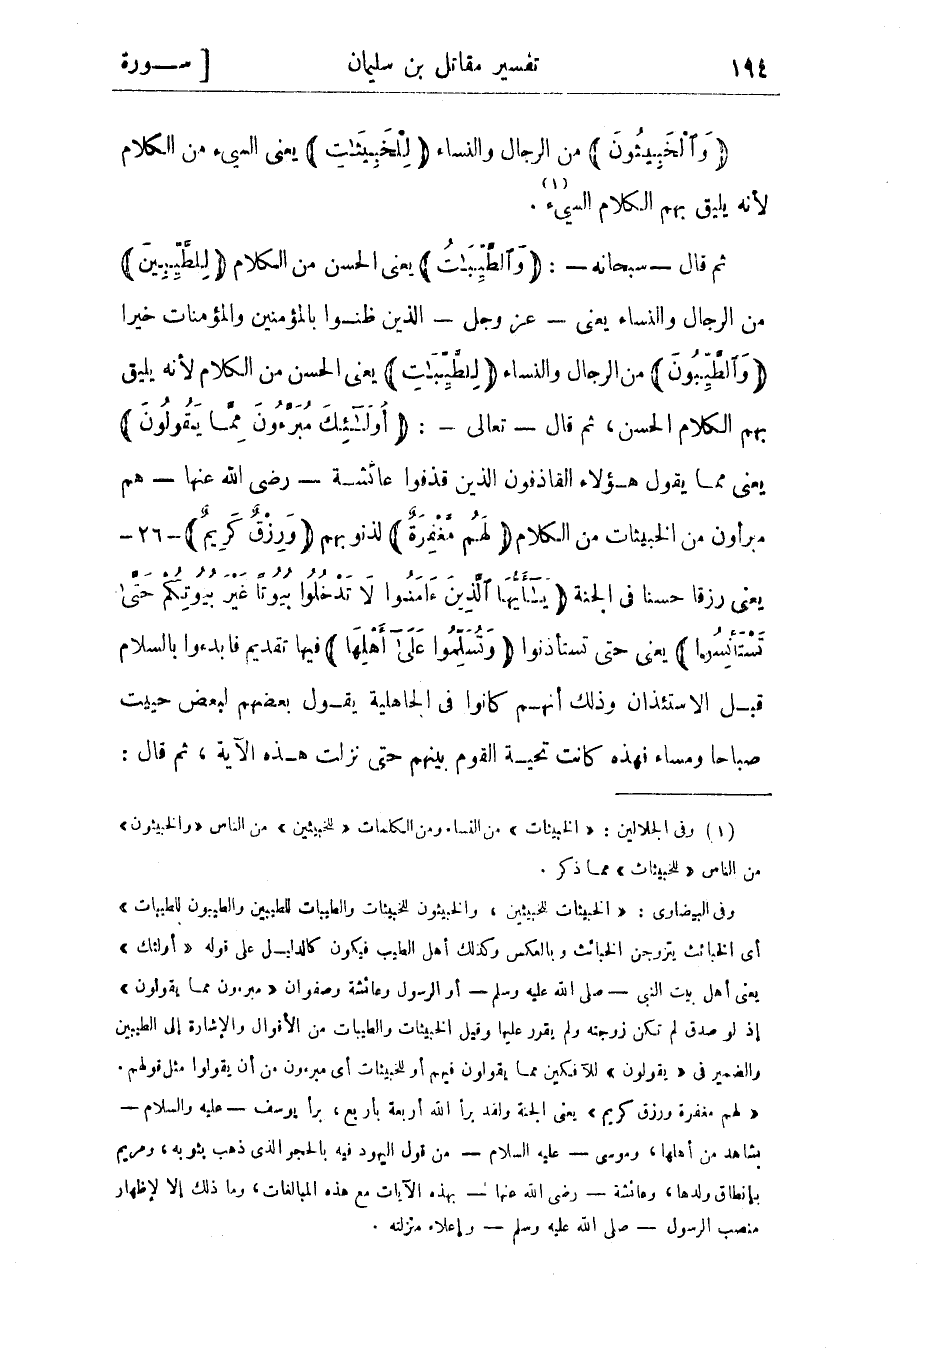 ١٩٤ تفسير مقاتل بن سليمان [ سـورة
﴿ وَٱلْخَبِيثُونَ ﴾ من الرجال والنساء ﴿ لِلْخَبِيثَـٰتِ ﴾ يعنى السيء من الكلام
لأنه يليق بهم الكلام السيء (١) .
ثم قال — سبحانه — : ﴿ وَٱلطَّيِّبَـٰتُ ﴾ يعنى الحسن من الكلام ﴿ لِلطَّيِّبِينَ ﴾
من الرجال والنساء يعنى — عز وجل — الذين ظنـوا بالمؤمنين والمؤمنات خيرا
﴿ وَٱلطَّيِّبُونَ ﴾ من الرجال والنساء ﴿ لِلطَّيِّبَـٰتِ ﴾ يعنى الحسن من الكلام لأنه يليق
بهم الكلام الحسن ، ثم قال — تعالى — : ﴿ أُولَـٰٓئِكَ مُبَرَّءُونَ مِمَّا يَقُولُونَ ﴾
يعنى ممـا يقول هـؤلاء القاذفون الذين قذفوا عائشـة — رضى الله عنها — هم
مبرأون من الخبيثات من الكلام ﴿ لَهُم مَّغْفِرَةٌ ﴾ لذنوبهم ﴿ وَرِزْقٌ كَرِيمٌ ﴾ -٢٦-
يعنى رزقا حسنا فى الجنة ﴿ يَـٰٓأَيُّهَا ٱلَّذِينَ ءَامَنُوا لَا تَدْخُلُوا بُيُوتًا غَيْرَ بُيُوتِكُمْ حَتَّىٰ
تَسْتَأْنِسُوا ﴾ يعنى حتى تستأذنوا ﴿ وَتُسَلِّمُوا عَلَىٰٓ أَهْلِهَا ﴾ فيها تقديم فابدءوا بالسلام
قبـل الاستئذان وذلك أنهـم كانوا فى الجاهلية يقـول بعضهم لبعض حييت
صباحا ومساء فهذه كانت تحيـة القوم بينهم حتى نزلت هـذه الآية ، ثم قال :
(١) وفى الجلالين : « الخبيثات » من النساء ومن الكلمات « للخبيثين » من الناس « والخبيثون »
من الناس « للخبيثات » ممـا ذكر .
وفى البيضاوى : « الخبيثات للخبيثين ، والخبيثون للخبيثات والطيبات للطيبين والطيبون للطيبات »
أى الخبائث يتزوجن الخبائث وبالعكس وكذلك أهل الطيب فيكون كالدليـل على قوله « أولئك »
يعنى أهل بيت النبى — صلى الله عليه وسلم — أو الرسول وعائشة وصفوان « مبرءون ممـا يقولون »
إذ لو صدق لم تكن زوجته ولم يقرر عليها وقيل الخبيثات والطيبات من الأقوال والإشارة إلى الطيبين
والضمير فى « يقولون » للآفكين ممـا يقولون فيهم أو للخبيثات أى مبرءون من أن يقولوا مثل قولهم .
« لهم مغفرة ورزق كريم » يعنى الجنة ولقد برأ الله أربعة بأربع ، برأ يوسف — عليه والسلام —
بشاهد من أهلها ، وموسى — عليه السلام — من قول اليهود فيه بالحجر الذى ذهب بثوبه ، ومريم
بإنطاق ولدها ، وعائشة — رضى الله عنها — بهذه الآيات مع هذه المبالغات ، وما ذلك إلا لإظهار
منصب الرسول — صلى الله عليه وسلم — وإعلاء منزلته .